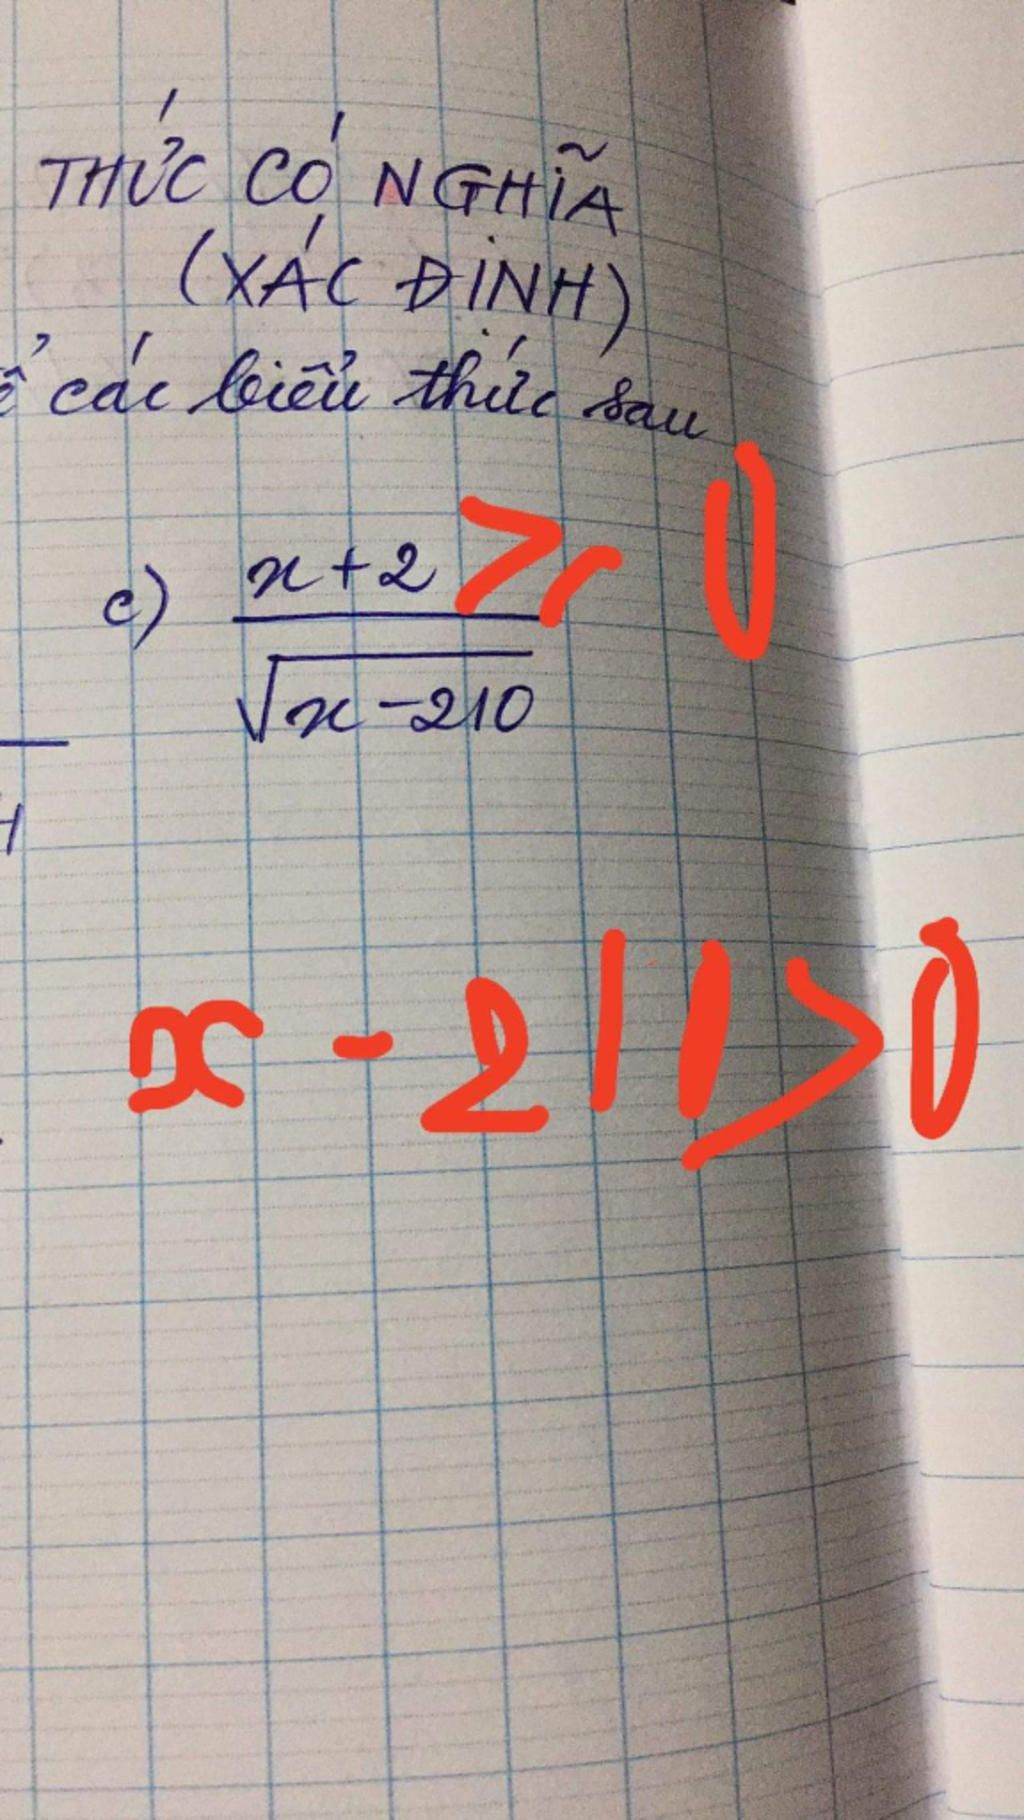 THỨC CÓ NGHĨA
(XÁC ĐỊNH)
ể các biểu thức sau
c) x+2 ≥ 0
√x-210
x - 210 > 0